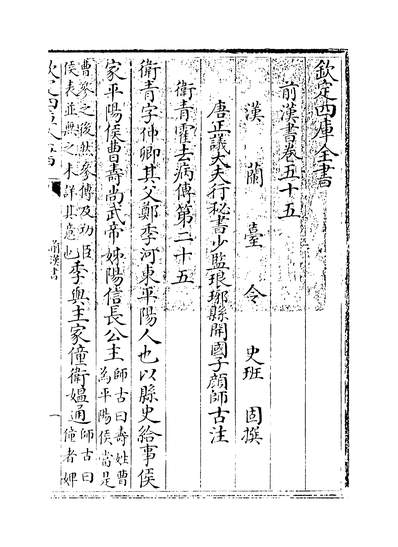 欽定四庫全書
前漢書卷五十五
漢蘭臺令史班固撰
唐正議大夫行秘書少監琅邪縣開國子顏師古注
衛青霍去病傳第二十五
衛青字仲卿其父鄭季河東平陽人也以縣吏給事侯
家平陽侯曹壽尚武帝姊陽信長公主師古曰壽姓曹為平陽侯當是
曹參之後然參傳及功臣侯表並無之未詳其意也季與主家僮衛媼通師古曰僮者婢
前漢書
一